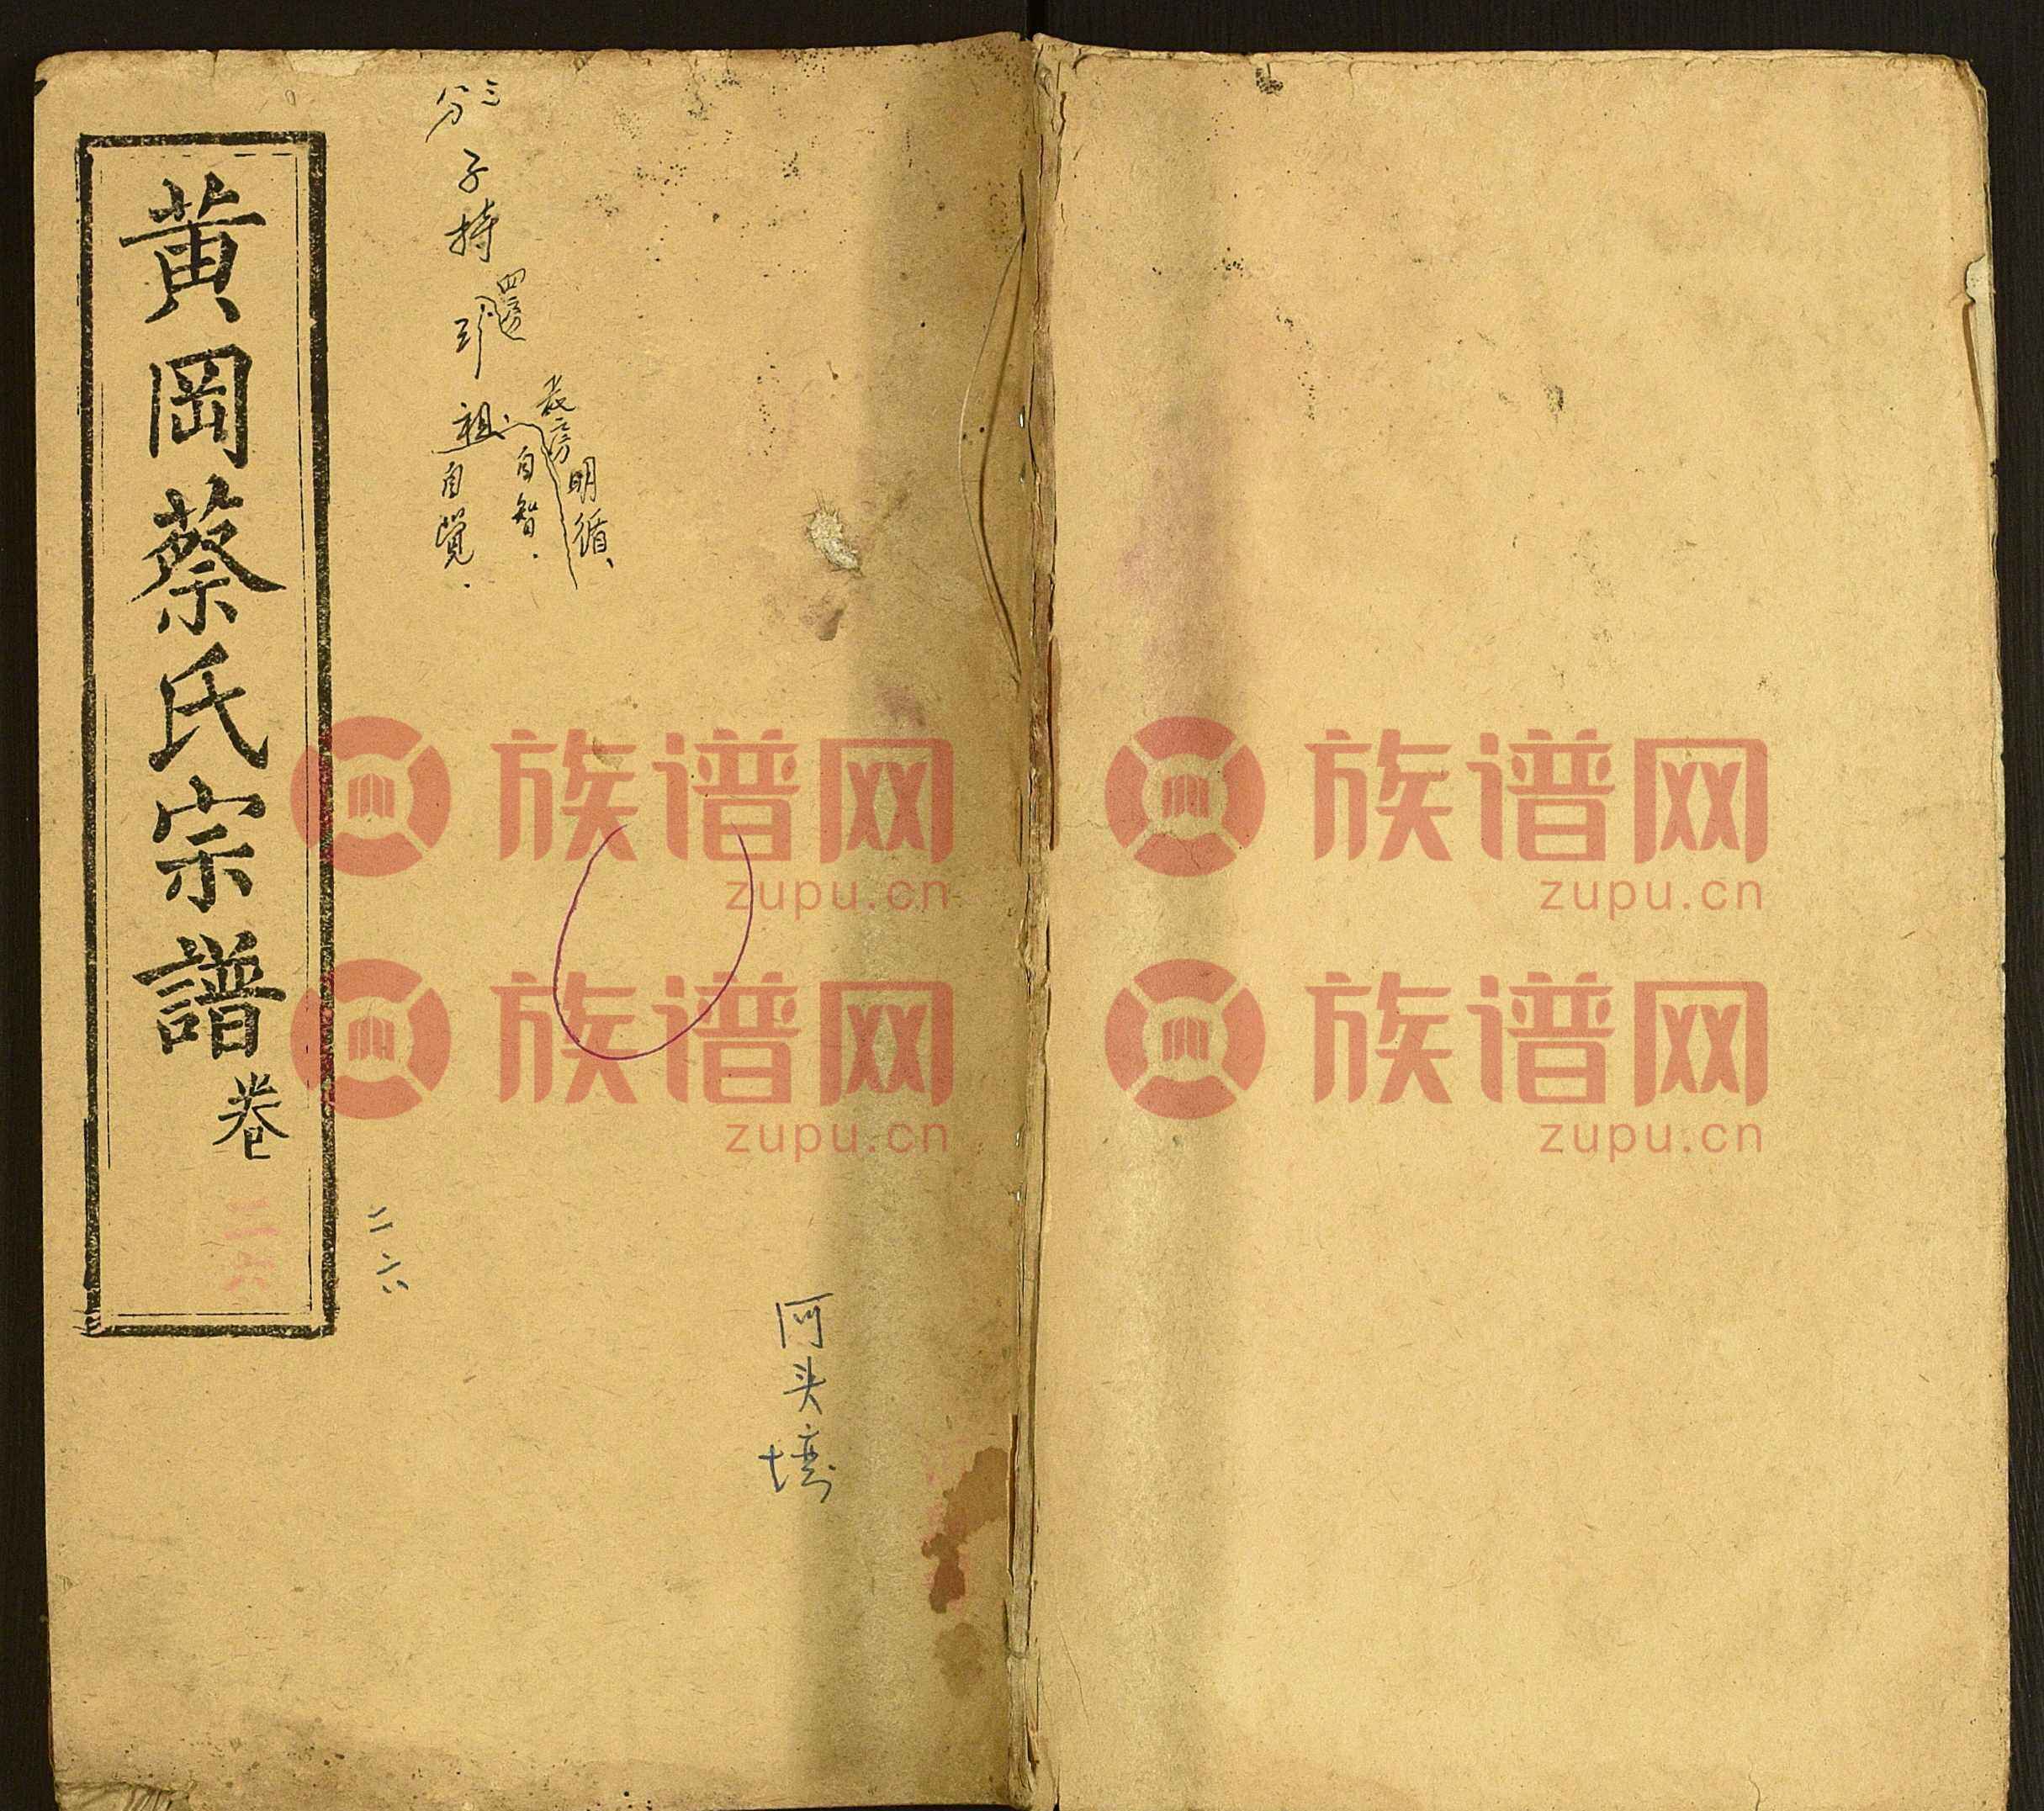 黄岡蔡氏宗譜卷
二六
二六
三分
子持
四房
祖
自覚.
自智.
明循、
阿头塆
族谱网
zupu.cn
族谱网
zupu.cn
族谱网
zupu.cn
族谱网
zupu.cn